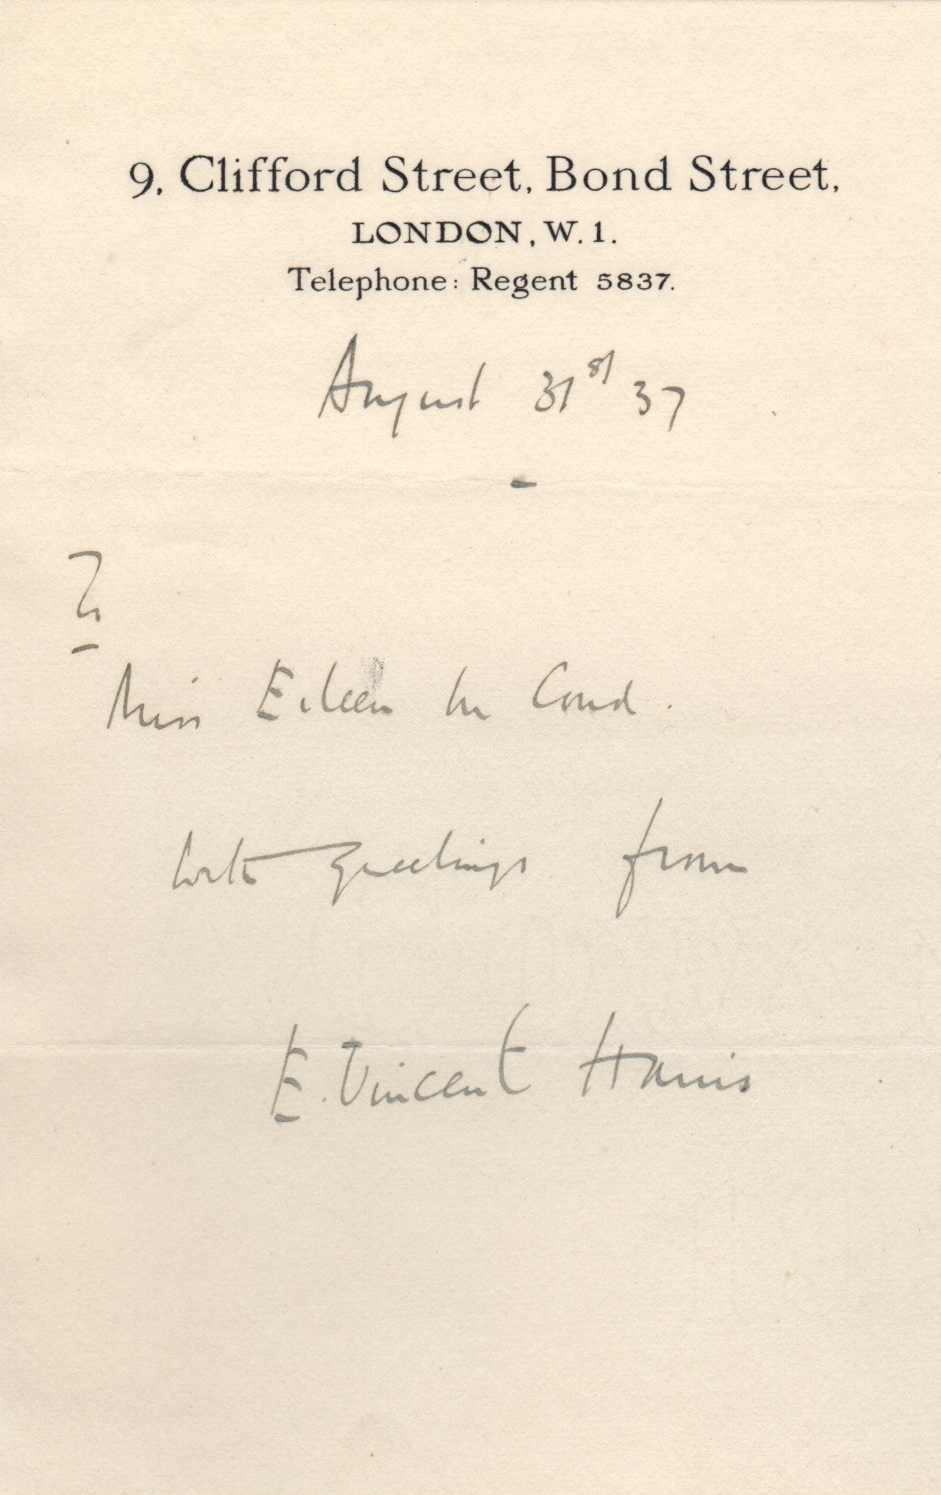 9, Clifford Street, Bond Street,
LONDON, W. 1.
Telephone: Regent 5837.
August 31st 37
To
Miss Eileen M Cond.
with greetings from
E. Vincent Harris